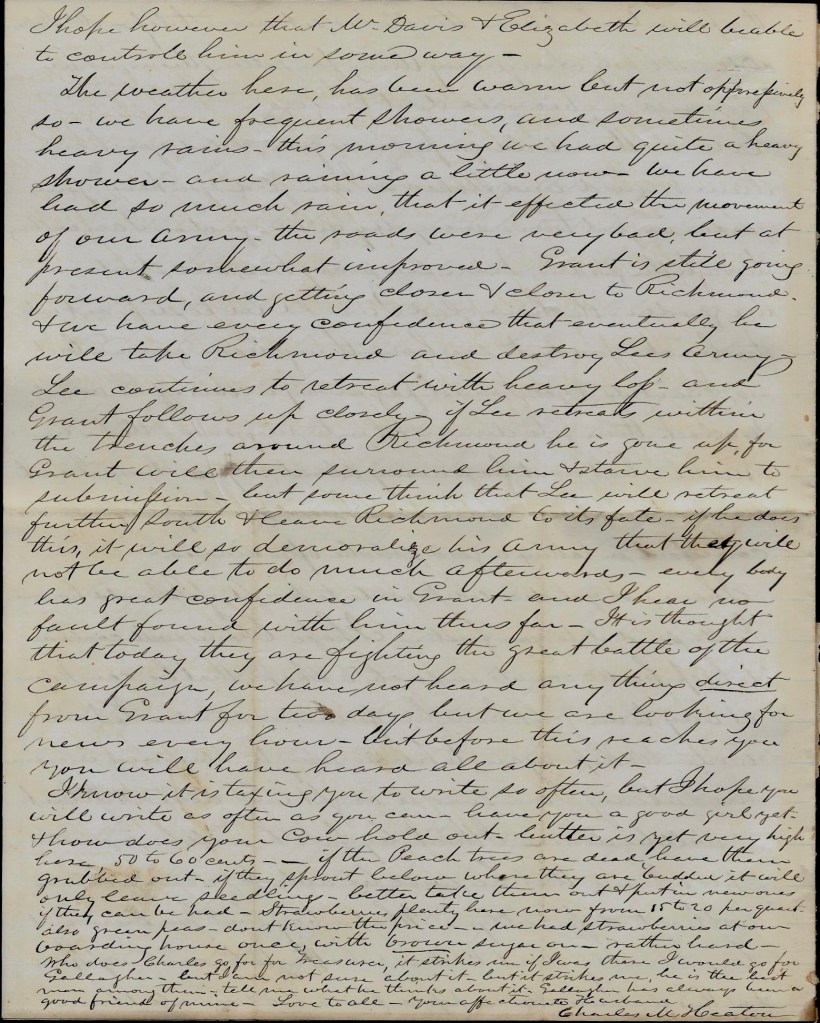 I hope however that Mr Davis & Elizabeth will be able
to controll him in some way –
The weather here, has been warm but not oppressively
so – we have frequent showers, and sometimes
heavy rains – this morning we had quite a heavy
shower – and raining a little now – we have
had so much rain, that it effected the movement
of our army – the roads were very bad, but at
present somewhat improved – Grant is still going
forward, and getting closer & closer to Richmond.
& we have every confidence that eventually he
will take Richmond and destroy Lees army –
Lee continues to retreat with heavy loss – and
Grant follows up closely – if Lee retreats within
the trenches around Richmond he is gone up, for
Grant will then surround him & starve him to
submission – but some think that Lee will retreat
further South & leave Richmond to its fate – if he does
this, it will so demoralize his army that they will
not be able to do much afterwards – every body
has great confidence in Grant – and I hear no
fault found with him thus far – It is thought
that today they are fighting the great battle of the
campaign, we have not heard any thing direct
from Grant for two days but we are looking for
news every hour – but before this reaches you
you will have heard all about it –
I know it is taxing you to write so often, but I hope you
will write as often as you can – have you a good girl yet –
& how does your Cow hold out – butter is yet very high
here, 50 to 60 cents – – if the Peach trees are dead have them
grubbed out – if they sprout below where they are budded it will
only leave seedling – better take them out & put in new ones
if they can be had – Strawberries plenty here now from 15 to 20 per quart –
also green peas – dont know the price – we had strawberries at our
boarding house once, with brown sugar on – rather hard –
Who does Charles go for for Treasurer, it strikes me if I was there I would go for
Gallagher – but I am not sure about it – but it strikes me, he is the best
man among them – tell me what he thinks about it – Gallagher has always been a
good friend of mine – Love to all – Your affectionate Husband
Charles M Heaton